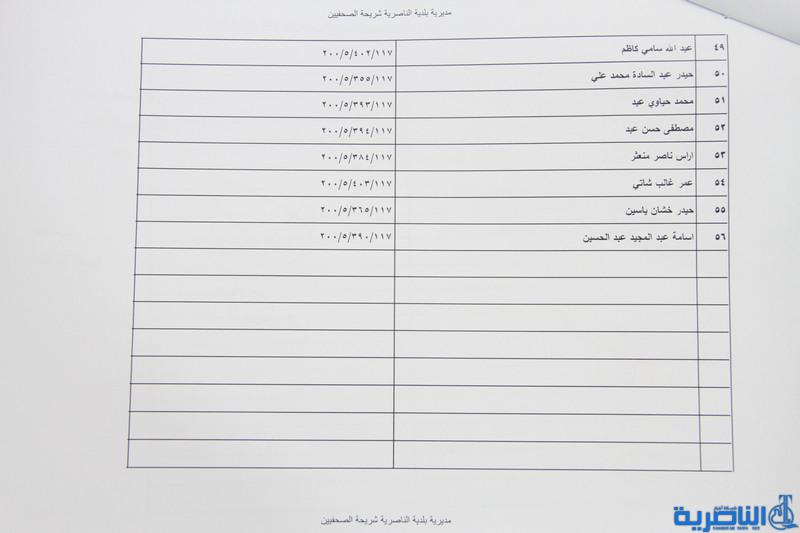 مديرية بلدية الناصرية شريحة الصحفيين
٤٩ عبد الله سامي كاظم ٢٠٠/٥/٤٠٢/١١٧
٥٠ حيدر عبد السادة محمد علي ٢٠٠/٥/٣٥٥/١١٧
٥١ محمد حياوي عبد ٢٠٠/٥/٣٩٣/١١٧
٥٢ مصطفى حسن عبد ٢٠٠/٥/٣٩٤/١١٧
٥٣ اراس ناصر منعثر ٢٠٠/٥/٣٨٤/١١٧
٥٤ عمر غالب شاتي ٢٠٠/٥/٤٠٣/١١٧
٥٥ حيدر خشان ياسين ٢٠٠/٥/٣٦٥/١١٧
٥٦ اسامة عبد المجيد عبد الحسين ٢٠٠/٥/٣٩٠/١١٧
مديرية بلدية الناصرية شريحة الصحفيين
شبكة أخبار
الناصرية
NASIRIYAH NEWS NET